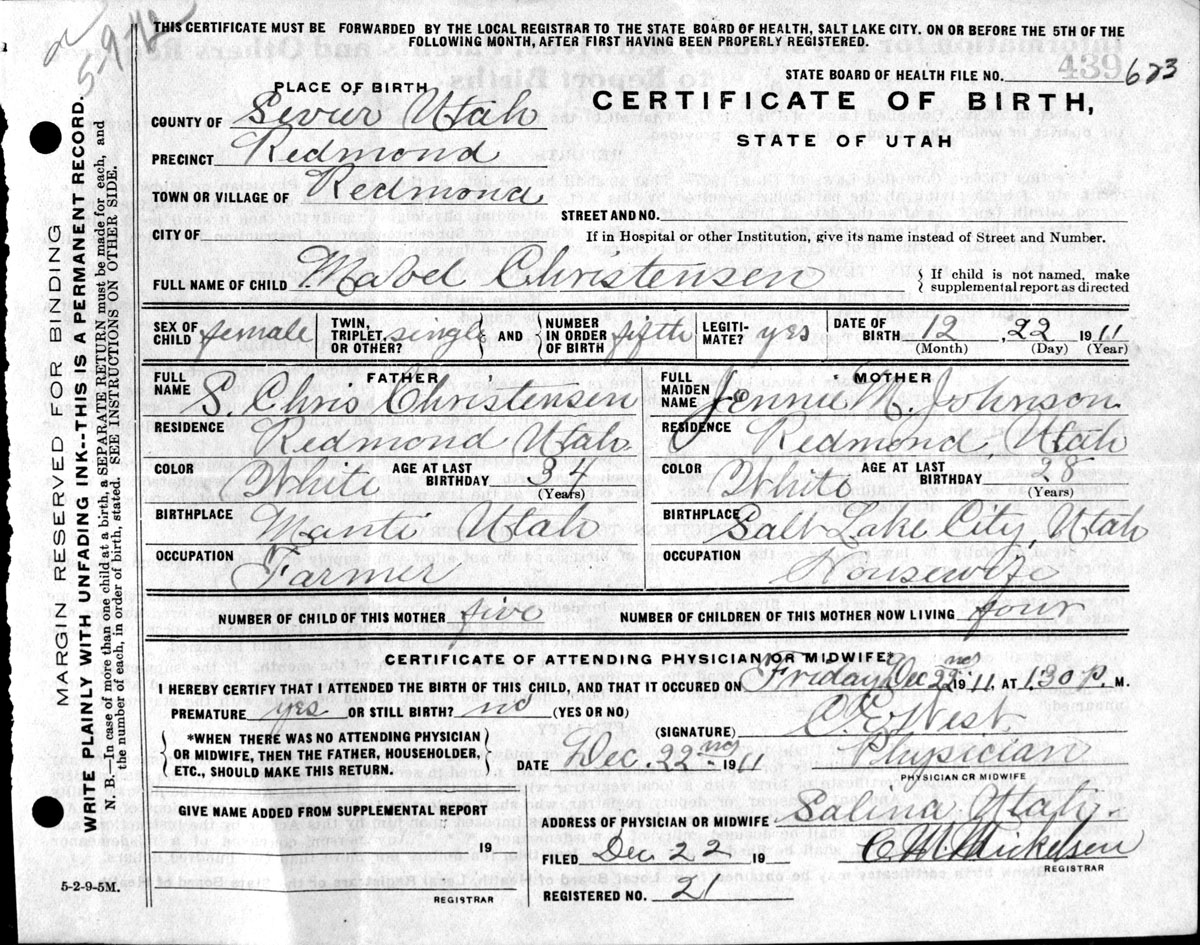 THIS CERTIFICATE MUST BE FORWARDED BY THE LOCAL REGISTRAR TO THE STATE BOARD OF HEALTH, SALT LAKE CITY. ON OR BEFORE THE 5TH OF THE
FOLLOWING MONTH, AFTER FIRST HAVING BEEN PROPERLY REGISTERED.
STATE BOARD OF HEALTH FILE NO. 623
439
PLACE OF BIRTH
CERTIFICATE OF BIRTH,
STATE OF UTAH
COUNTY OF Sevier Utah
PRECINCT Redmond
TOWN OR VILLAGE OF Redmond
STREET AND NO.
CITY OF
If in Hospital or other Institution, give its name instead of Street and Number.
FULL NAME OF CHILD Mabel Christensen
If child is not named, make
supplemental report as directed
SEX OF CHILD female TWIN, TRIPLET, OR OTHER? single AND NUMBER IN ORDER OF BIRTH fifth LEGITI-MATE? yes DATE OF BIRTH 12, 22 1911
(Month) (Day) (Year)
FATHER
FULL NAME S. Chris Christensen
RESIDENCE Redmond Utah
COLOR White AGE AT LAST BIRTHDAY 34
(Years)
BIRTHPLACE Manti Utah
OCCUPATION Farmer
MOTHER
FULL MAIDEN NAME Jennie M. Johnson
RESIDENCE Redmond, Utah
COLOR White AGE AT LAST BIRTHDAY 28
(Years)
BIRTHPLACE Salt Lake City, Utah
OCCUPATION Housewife
NUMBER OF CHILD OF THIS MOTHER five NUMBER OF CHILDREN OF THIS MOTHER NOW LIVING four
CERTIFICATE OF ATTENDING PHYSICIAN OR MIDWIFE*
I HEREBY CERTIFY THAT I ATTENDED THE BIRTH OF THIS CHILD, AND THAT IT OCCURED ON Friday Dec 22nd 1911, AT 1.30 P. M.
PREMATURE yes OR STILL BIRTH? no (YES OR NO)
(SIGNATURE) C. E. West
*WHEN THERE WAS NO ATTENDING PHYSICIAN
OR MIDWIFE, THEN THE FATHER, HOUSEHOLDER,
ETC., SHOULD MAKE THIS RETURN.
DATE Dec. 22nd 1911
Physician
PHYSICIAN OR MIDWIFE
GIVE NAME ADDED FROM SUPPLEMENTAL REPORT
19
REGISTRAR
ADDRESS OF PHYSICIAN OR MIDWIFE Salina Utah
FILED Dec. 22 19
C. W. Mickelsen
REGISTRAR
REGISTERED NO. 21
5-2-9-5M.
MARGIN RESERVED FOR BINDING
WRITE PLAINLY WITH UNFADING INK--THIS IS A PERMANENT RECORD.
N. B.—In case of more than one child at a birth, a SEPARATE RETURN must be made for each, and
the number of each, in order of birth, stated. SEE INSTRUCTIONS ON OTHER SIDE.